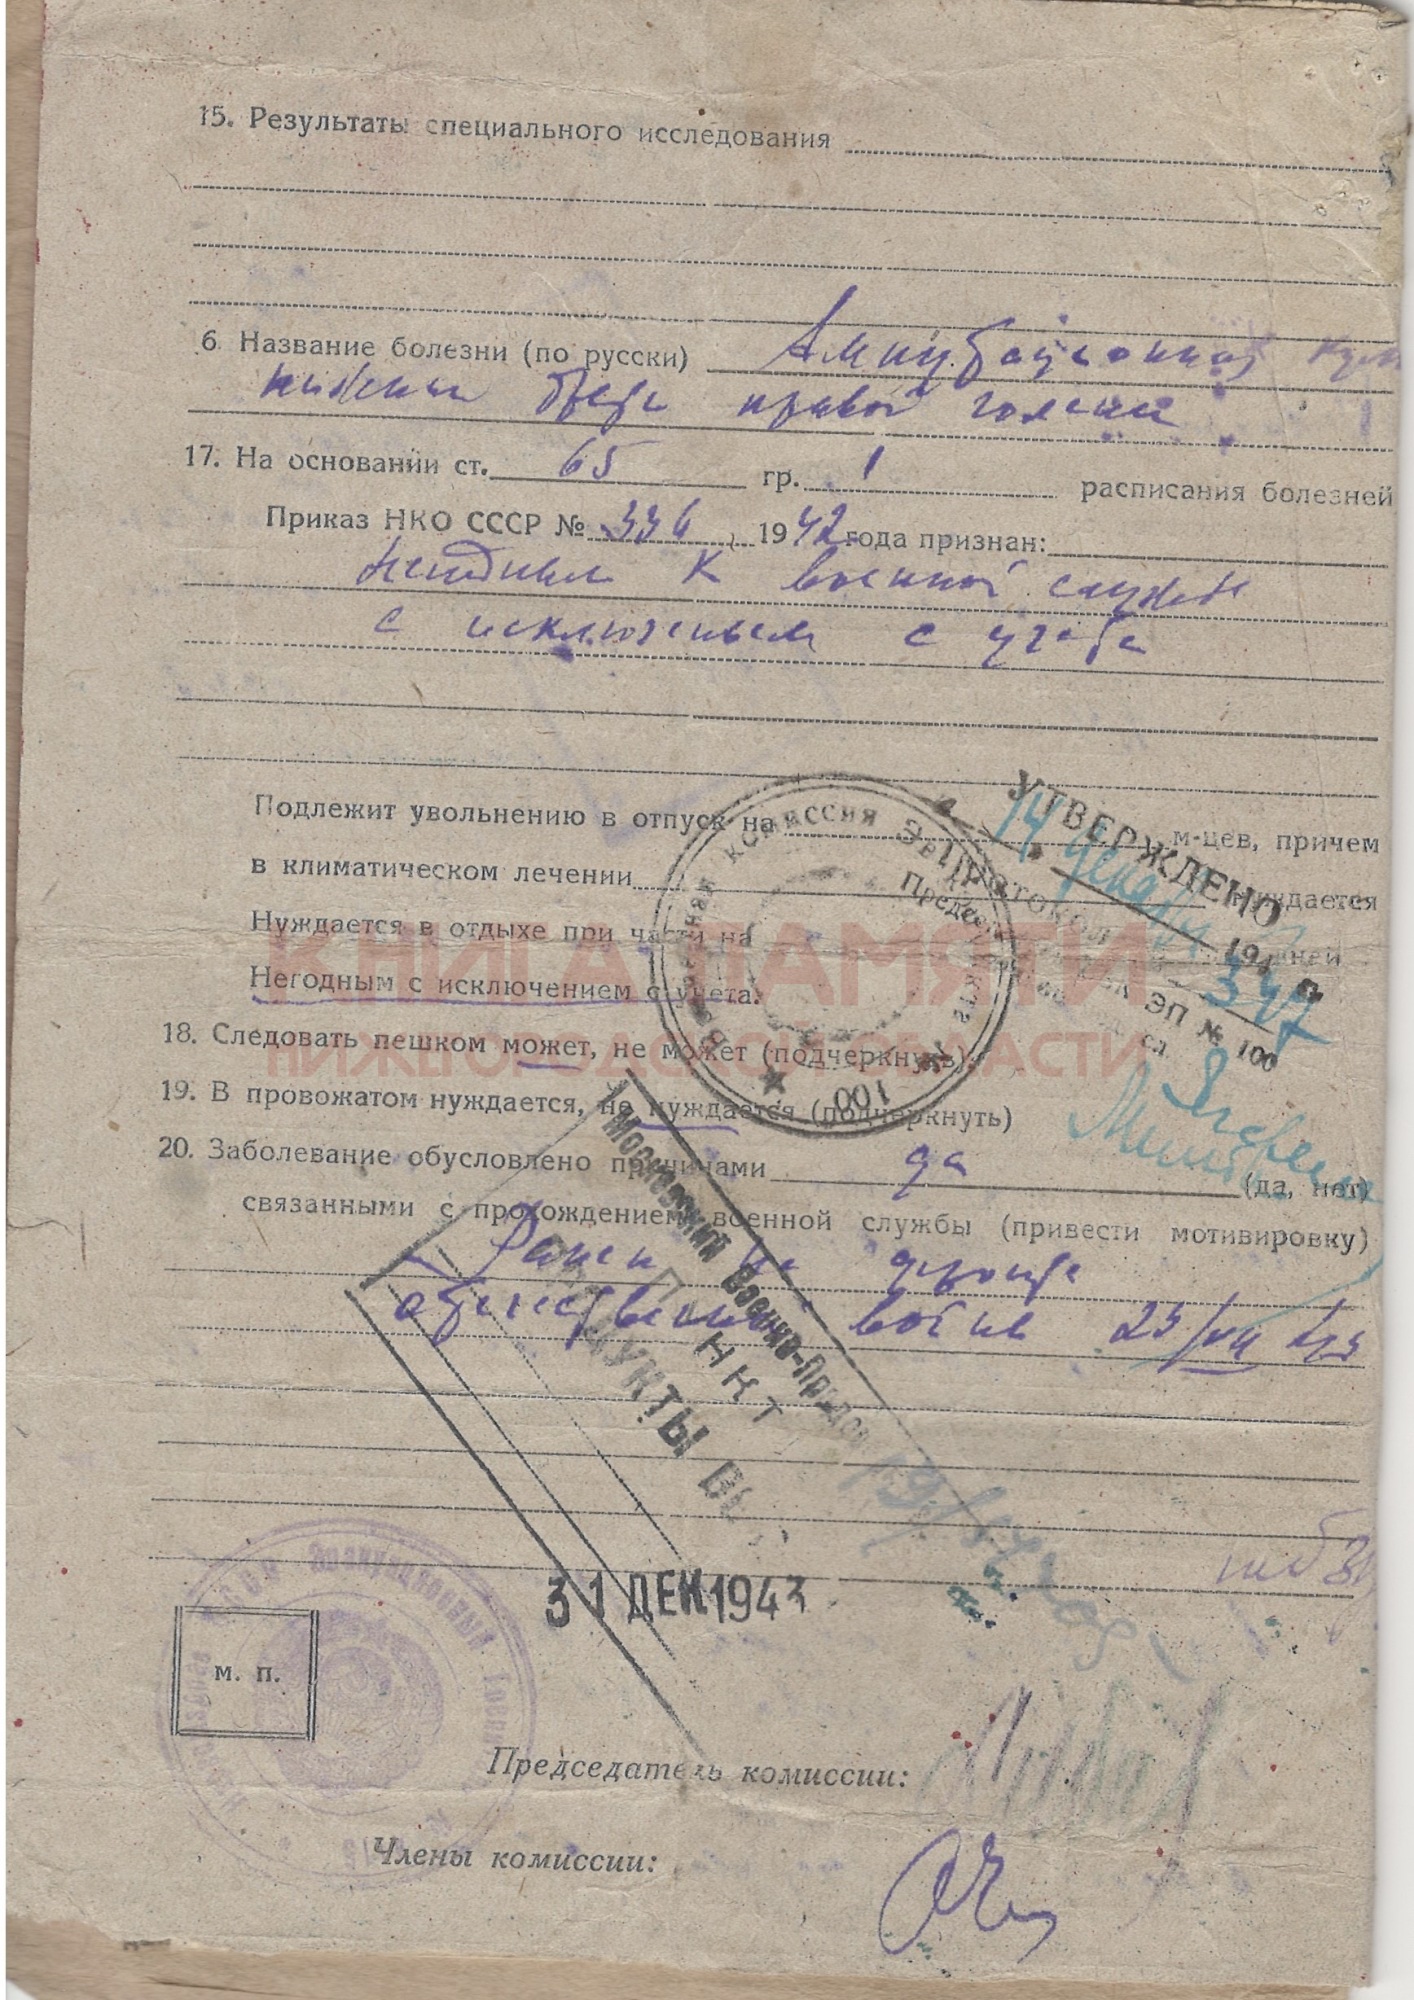 15. Результаты специального исследования
6. Название болезни (по русски) Ампутационная
нижней трети правой голени
17. На основании ст. 65 гр. 1 расписания болезней
Приказ НКО СССР № 336, 1942 года признан:
негодным к военной службе
с исключением с учета
УТВЕРЖДЕНО
Подлежит увольнению в отпуск на м-цев, причем
14 декабря 194 г.
в климатическом лечении нуждается
Нуждается в отдыхе при части на дней
КНИГА ПАМЯТИ
Негодным с исключением с учета.
347
ЭП № 100
18. Следовать пешком может, не может (подчеркнуть).
НИЖЕГОРОДСКОЙ ОБЛАСТИ
19. В провожатом нуждается, не нуждается (подчеркнуть)
20. Заболевание обусловлено причинами да (да, нет)
связанными с прохождением военной службы (привести мотивировку)
Ранен на фронте
отечественной войне 23/VIII 43
Московский Военно-Продов
ПУНКТ
ПРОДУКТЫ ВЫ
31 ДЕК 1943
м. п.
Председатель комиссии:
Члены комиссии: